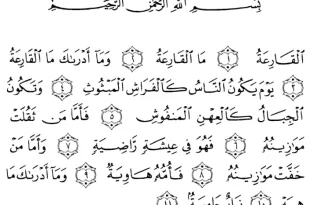 بِسْمِ اللَّهِ الرَّحْمَٰنِ الرَّحِيمِ
الْقَارِعَةُ ۝١ مَا الْقَارِعَةُ ۝٢ وَمَا أَدْرَاكَ مَا الْقَارِعَةُ
۝٣ يَوْمَ يَكُونُ النَّاسُ كَالْفَرَاشِ الْمَبْثُوثِ ۝٤ وَتَكُونُ
الْجِبَالُ كَالْعِهْنِ الْمَنفُوشِ ۝٥ فَأَمَّا مَن ثَقُلَتْ
مَوَازِينُهُ ۝٦ فَهُوَ فِي عِيشَةٍ رَّاضِيَةٍ ۝٧ وَأَمَّا مَنْ
خَفَّتْ مَوَازِينُهُ ۝٨ فَأُمُّهُ هَاوِيَةٌ ۝٩ وَمَا أَدْرَاكَ مَا
هِيَهْ ۝١٠ نَارٌ حَامِيَةٌ ۝١١